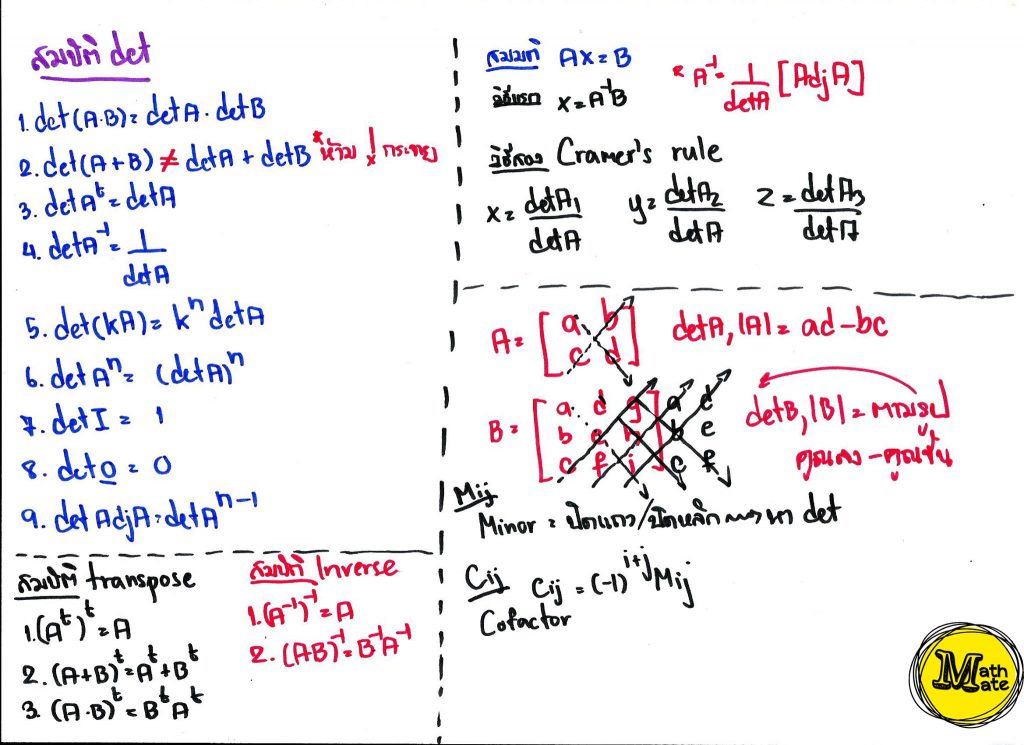 สมบัติ det
1. det(A·B) = detA · detB
2. det(A+B) ≠ detA + detB *ห้าม ! กระจาย
3. detAᵗ = detA
4. detA⁻¹ = 1/detA
5. det(kA) = kⁿ detA
6. detAⁿ = (detA)ⁿ
7. detI = 1
8. det0 = 0
9. det AdjA = detAⁿ⁻¹
สมบัติ transpose
1. (Aᵗ)ᵗ = A
2. (A+B)ᵗ = Aᵗ + Bᵗ
3. (A·B)ᵗ = BᵗAᵗ
สมบัติ Inverse
1. (A⁻¹)⁻¹ = A
2. (AB)⁻¹ = B⁻¹A⁻¹
สมมติ AX = B
วิธีแรก X = A⁻¹B
* A⁻¹ = 1/detA [AdjA]
วิธีสอง Cramer's rule
x = detA₁/detA y = detA₂/detA z = detA₃/detA
A = [a b
c d] detA, |A| = ad - bc
B = [a d g] a d
[b e h] b e
[c f i] c f
detB, |B| = ตามรูป
คูณลง - คูณขึ้น
Mij
Minor = ปิดแถว/ปิดหลัก หา det
Cij Cij = (-1)ⁱ⁺ʲ Mij
Cofactor
Math
Mate